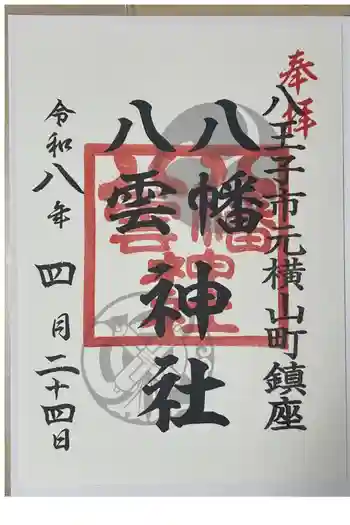 奉拝
八王子市元横山町鎮座
八幡
八雲
神社
令和八年四月二十四日